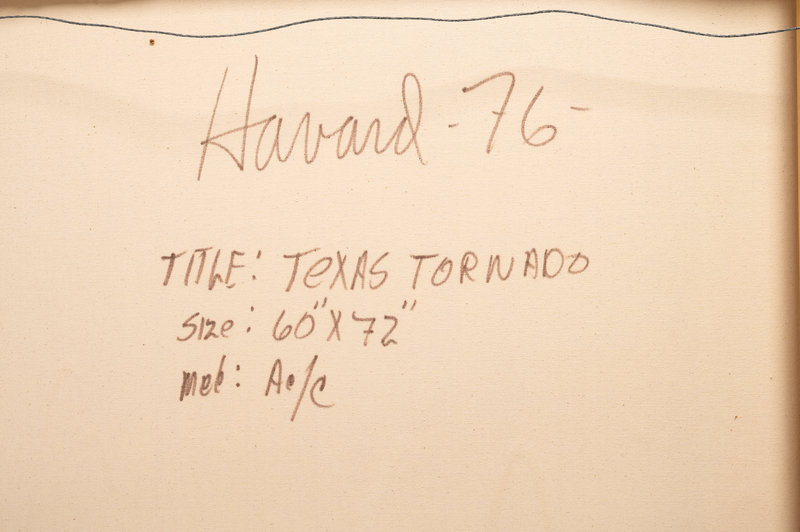 Havard - 76 -
TITLE: TEXAS TORNADO
SIZE: 60" X 72"
Med: Ac/c